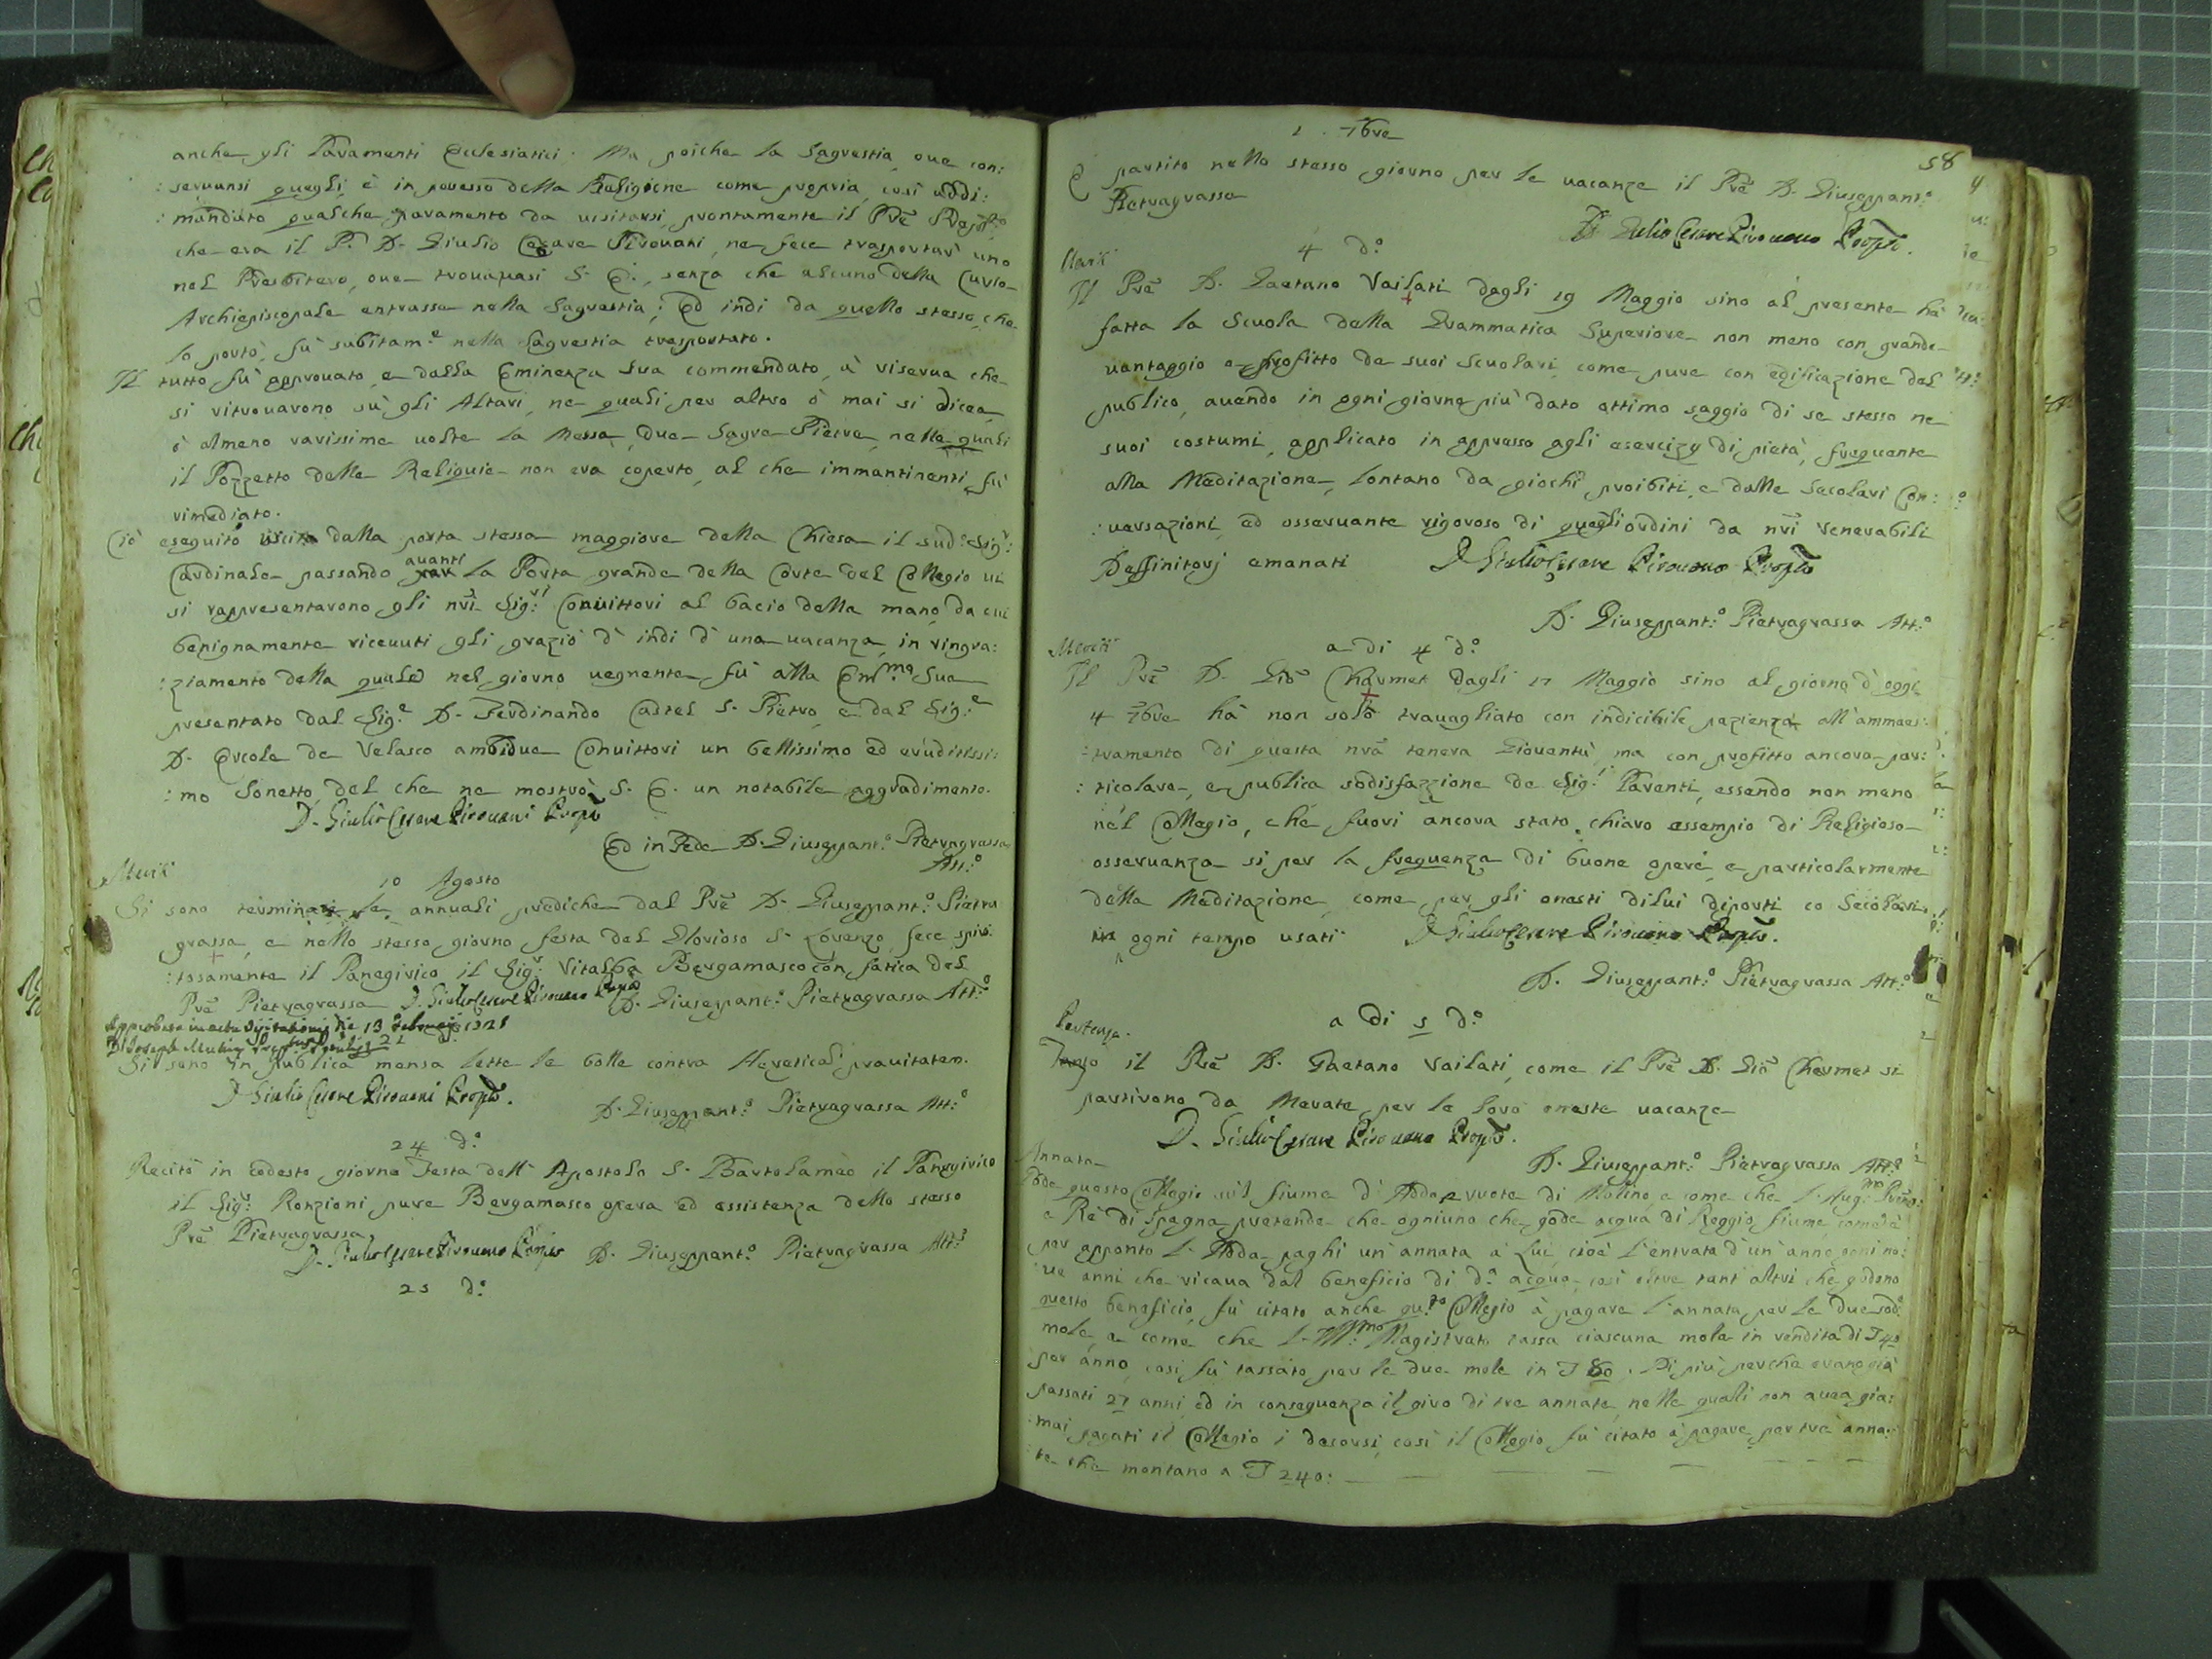 anche gli Paramenti Ecclesiatici; Ma poiche la Sagrestia, oue con:
:seruansi quegli è in possesso della Religione come propria, così addi:
:mandato qualche paramento da uisitarsi, prontamente il Prē Prepſto
che era il P. D. Giulio Cesare Pirouani, ne fece trasportar' uno
nel Presbitero, oue trouauasi S. E., senza che alcuno della Curia
Archiepiscopale entrasse nella Sagrestia; Ed indi da quello stesso, che
lo portò, fù subitam.e nella Sagrestia trasportato.
Il tutto fù approuato, e dalla Eminenza Sua commendato, à riserua che
si ritrouarono sù gli Altari, ne quali per altro ò mai si dicea,
ò almeno rarissime uolte la Messa, due Sagre Pietre, nelle quali
il Pozzetto delle Reliquie non era coperto, al che immantinenti fù
rimediato.
Ciò eseguito uscito dalla porta stessa maggiore della Chiesa il sud.o Sig.r
Cardinale passando auanti la Porta grande della Corte del Collegio ui
si rappresentarono gli nrī Sig.ri Conuittori al bacio della mano, da cui
benignamente riceuuti gli graziò d' indi d' una uacanza, in ringra:
:ziamento della quale nel giorno uegnente fù alla Em.ma Sua
presentato dal Sig.e D. Ferdinando Castel S. Pietro, e dal Sig.e
D. Ercole de Velasco ambidue Conuittori un bellissimo ed eruditissi:
:mo Sonetto, del che ne mostrò S. E. un notabile aggradimento.
D. Giulio Cesare Pirouani Propto
Ed in Fede D. Giuseppant.o Pietragrassa
Att.o
Meriti
10 Agosto
Si sono terminate le annuali prediche dal Prē D. Giuseppant.o Pietra
grassa, e nello stesso giorno festa del Glorioso S. Lorenzo fece spiri:
:tosamente il Panegirico il Sig.r Vitalba Bergamasco con fatica del
Prē Pietragrassa D. Giulio Cesare Pirouano Propto D. Giuseppant.o Pietragrassa Att.o
Approbata in actu Visitationis die 13 1721
D. Joseph
Si sono in publica mensa lette le bolle contra Hereticali prauitatem.
D. Giulio Cesare Pirouani Propto. D. Giuseppant.o Pietragrassa Att.o
24 d.o
Recitò in codesto giorno Festa dell' Apostolo S. Bartolameo il Panegirico
il Sig.r Ronzioni pure Bergamasco opera ed assistenza dello stesso
Prē Pietragrassa
D. Giulio Cesare Pirouano Propto D. Giuseppant.o Pietragrassa Att.o
25 d.o
1. 7bre
58
È partito nello stesso giorno per le uacanze il Prē D. Giuseppant.o
Pietragrassa
D. Giulio Cesare Pirouano Propto.
4 d.o
Meriti
Il Prē D. Gaetano Vailati dagli 19 Maggio sino al presente hà
fatta la Scuola della Grammatica Superiore non meno con grande
uantaggio e profitto de suoi Scuolari, come pure con edificazione del
publico, auendo in ogni giorno più dato ottimo saggio di se stesso ne
suoi costumi, applicato in appresso agli esercizy di pietà, frequente
alla Meditazione, lontano da giochi proibiti, e dalle Secolari Con:
:uersazioni, ed osseruante rigoroso di quegli ordini da nrī Venerabili
Deffinitorj emanati D. Giulio Cesare Pirouano Propto
D. Giuseppant.o Pietragrassa Att.o
Meriti
a di 4 d.o
Il Prē D. Giō Chermet dagli 17 Maggio sino al giorno d' oggi
4 7bre hà non solo trauagliato con indicibile pazienza all' ammaes:
:tramento di questa nrā tenera Giouentù, ma con profitto ancora par:
:ticolare, e publica sodisfazzione de Sig.ri Parenti, essendo non meno
nel Collegio, che fuori ancora stato chiaro essempio di Religiosa
osseruanza sì per la frequenza di buone opere, e particolarmente
della Meditazione, come per gli onesti dilui diporti co Secolari
in ogni tempo usati D. Giulio Cesare Pirouano Propto.
D. Giuseppant.o Pietragrassa Att.o
a di 5 d.o
Partenza.
Tanto il Prē D. Gaetano Vailati, come il Prē D. Giō Chermet si
partirono da Merate per le loro oneste uacanze
D. Giulio Cesare Pirouano Propto.
D. Giuseppant.o Pietragrassa Att.o
Annata
Gode questo Collegio sul fiume d' Adda 2 ruote di Molino, e come che l' Aug.mo
e Rè di Spagna pretende che ogniuno che gode acqua di Reggio fiume, come è
per apponto l' Adda paghi un' annata a Lui, cioè l' entrata d' un' anno ogni no:
:ue anni che ricaua dal beneficio di d.a acqua, così oltre tant' altri che godono
questo beneficio, fù citato anche qu.to Collegio à pagare l' annata per le due sod.e
mole, e come che l' Ill.mo Magistrato tassa ciascuna mola in rendita di 40
per anno, così fù tassato per le due mole in 80. Di più perche erano già
passati 27 anni, ed in conseguenza il giro di tre annate, nelle quali non auea gia:
:mai pagati il Collegio i decorsi, così il Collegio fù citato à pagare per tre anna:
:te che montano a 240: —